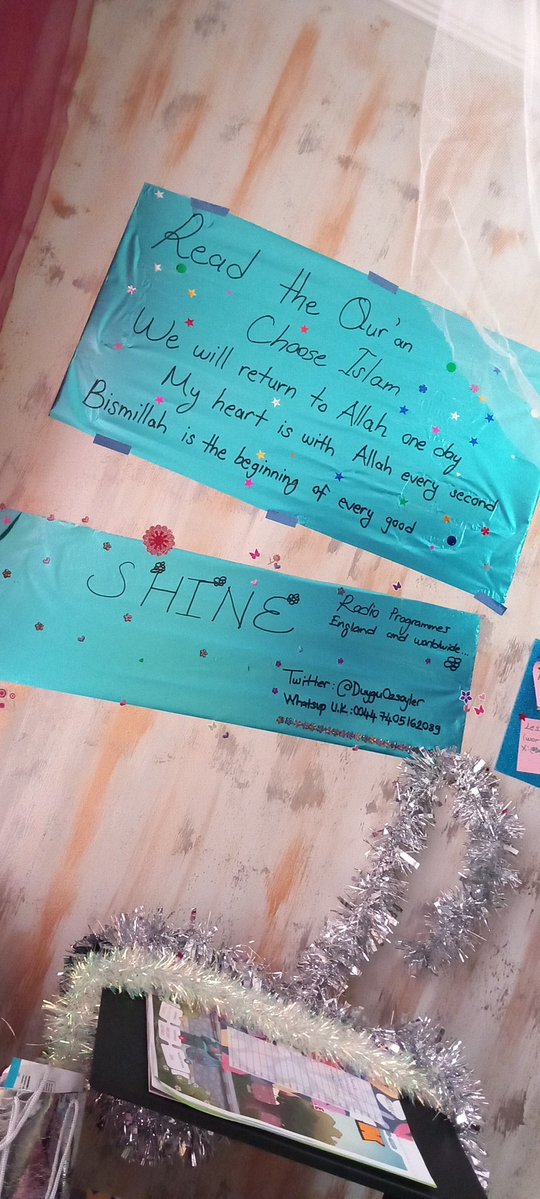 Read the Qur'an
Choose Islam
We will return to Allah one day
My heart is with Allah every second
Bismillah is the beginning of every good
SHINE
Radio Programmes
England and worldwide...
Twitter: @DuyguOzsoyler
Whatsup U.K.:0044 7405162089